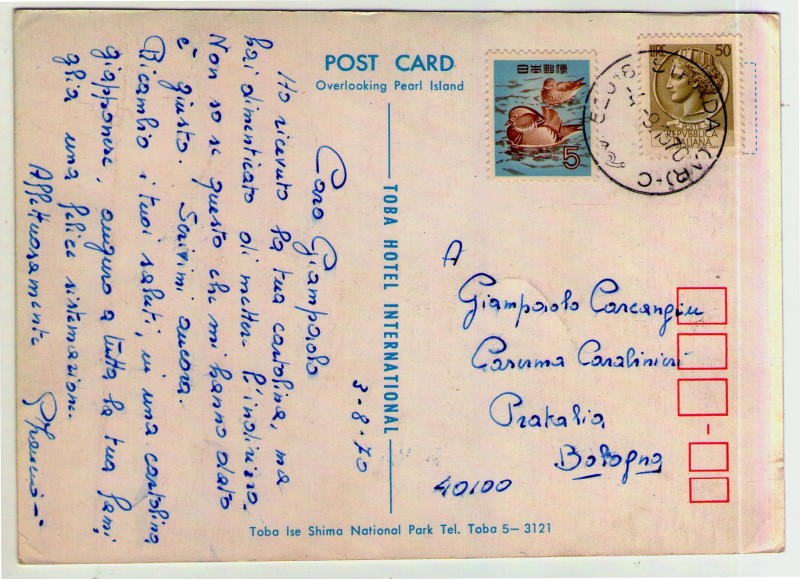 POST CARD
Overlooking Pearl Island
日本郵便
5
LIRE 50
POSTE
REPVBBLICA
ITALIANA
TOBA HOTEL INTERNATIONAL
3-8-70
Caro Giampaolo
Ho ricevuto la tua cartolina, ma
hai dimenticato di mettere l'indirizzo.
Non so se questo che mi hanno dato
è giusto. Scrivimi ancora.
Ricambio i tuoi saluti, in una cartolina
giapponese, auguro a tutta la tua fami
glia una felice sistemazione.
Affettuosamente
A
Giampaolo Carcangiu
Caserma Carabinieri
Bologna
40100
Toba Ise Shima National Park Tel. Toba 5-3121